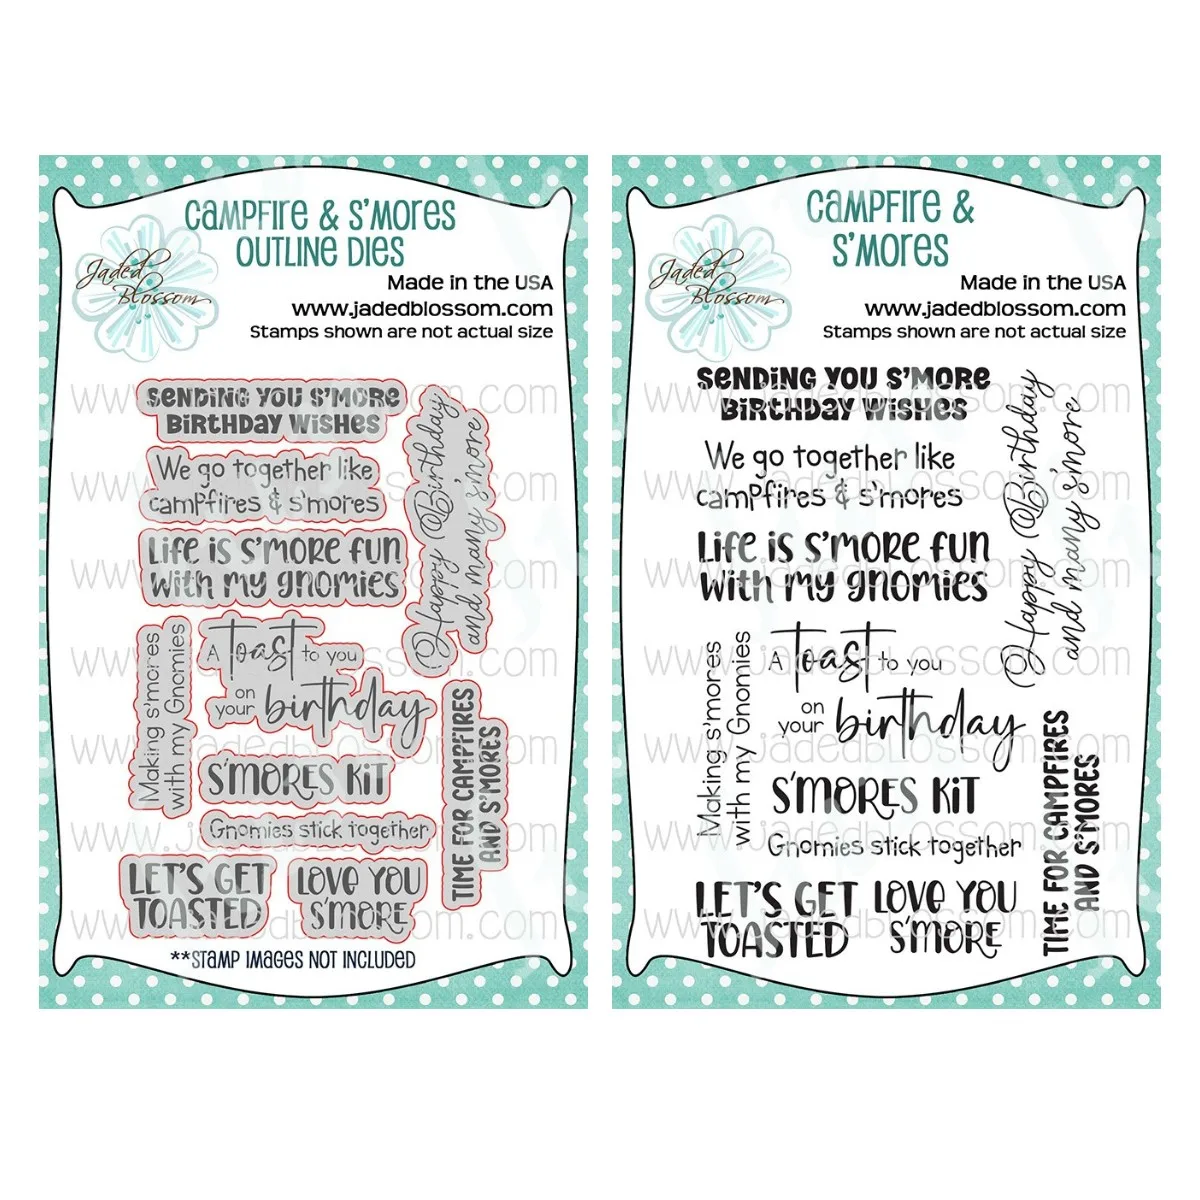 CAMPFIRE & S'MORES
OUTLINE DIES
Jaded
Blossom
Made in the USA
www.jadedblossom.com
Stamps shown are not actual size
SENDING YOU S'MORE
BIRTHDAY WISHES
We go together like
campfires & s'mores
Life is s'more fun
with my gnomies
Happy Birthday
and many s'more
Making s'mores
with my Gnomies
A toast to you
on
your birthday
S'MORES KIT
Gnomies stick together
TIME FOR CAMPFIRES
AND S'MORES
LET'S GET
TOASTED
LOVE YOU
S'MORE
**STAMP IMAGES NOT INCLUDED
www.jadedblossom.com
www.jadedblossom.com
www.jadedblossom.com
www.jadedblossom.com
www.jadedblossom.com
www.jadedblossom.com
www.jadedblossom.com
CAMPFIRE &
S'MORES
Jaded
Blossom
Made in the USA
www.jadedblossom.com
Stamps shown are not actual size
SENDING YOU S'MORE
BIRTHDAY WISHES
We go together like
campfires & s'mores
Life is s'more fun
with my gnomies
Happy Birthday
and many s'more
Making s'mores
with my Gnomies
A toast to you
on
your birthday
S'MORES KIT
Gnomies stick together
TIME FOR CAMPFIRES
AND S'MORES
LET'S GET
TOASTED
LOVE YOU
S'MORE
www.jadedblossom.com
www.jadedblossom.com
www.jadedblossom.com
www.jadedblossom.com
www.jadedblossom.com
www.jadedblossom.com
www.jadedblossom.com